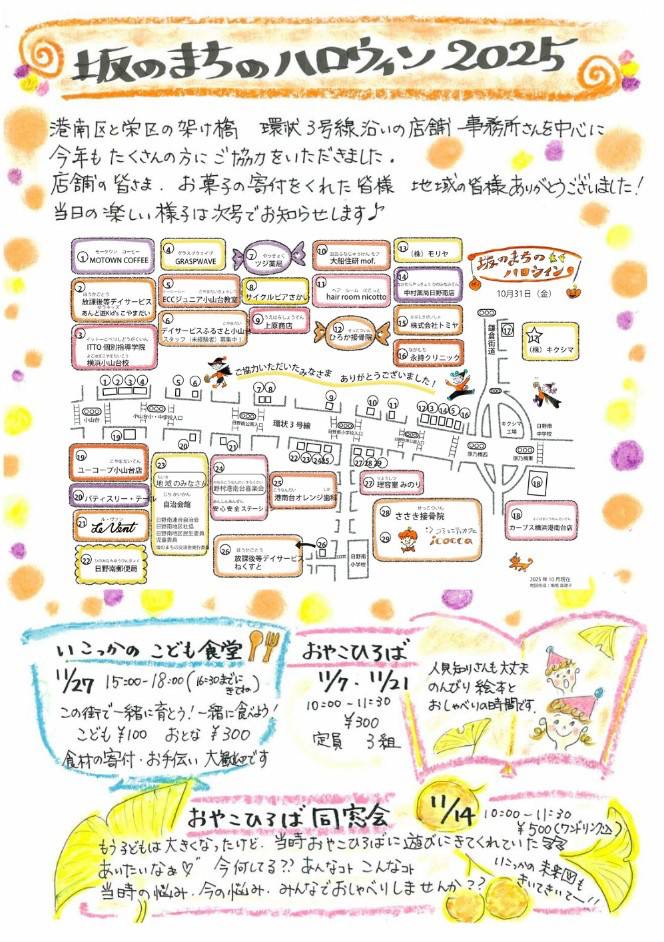 坂のまちのハロウィン 2025
港南区と栄区の架け橋 環状3号線沿いの店舗 事務所さんを中心に
今年も たくさんの方に ご協力をいただきました。
店舗の皆さま、お菓子の寄付をくれた皆様 地域の皆様ありがとうございました!
当日の楽しい様子は次号でお知らせします♪
坂のまちの
ハロウィン
10月31日(金)
① モータウン コーヒー
MOTOWN COFFEE
② 放課後等デイサービス
あんと遊Kid's こやまだい
③ ITTO個別指導学院
横浜小山台校
④ グラスプウェイブ
GRASPWAVE
⑤ ECCジュニア小山台教室
⑥ デイサービスふるさと小山台
スタッフ(未経験者)募集中!
⑦ ツジ薬局
⑧ サイクルピアさかい
⑨ 上原商店
⑩ 大船住研 mof.
⑪ ヘア ルーム にこっと
hair room nicotto
⑫ ひろか接骨院
⑬ (株)モリヤ
⑭ 中村薬局日野南店
⑮ 株式会社トミヤ
⑯ 永峰クリニック
⑰
(株)キクシマ
ご協力いただいたみなさま ありがとうございました!
鎌倉街道
①②③④ ⑤ ⑥ ⑦⑧ ⑨ ⑩ ⑪ ⑫⑬⑭⑮⑯
小山台
小山台小・中学校入口
環状3号線
キクシマ
工場
日野南
中学校
⑲ ⑳ ㉑ ㉒㉓㉔㉕ ㉗㉘㉙
⑱
⑲ ユーコープ小山台店
⑳ パティスリー・テール
㉑ ル・ヴァン
Le Vent
㉒ 日野南郵便局
㉓ 地域のみなさん
自治会館
日野南連合自治会
日野南地区社協
日野南地区民生委員
児童委員
㉔ 野村港南台音楽会
安心安全ステーション
㉕ 港南台オレンジ歯科
㉖ 放課後等デイサービス
ねくすと
㉖
日野南
小学校
㉗ 理容室みのり
㉘ ささき接骨院
㉙ コミュニティカフェ
icocca
⑱ カーブス横浜港南台店
2025年10月現在
いこっかの こども食堂
11/27 15:00-18:00(16:30までにきてね)
この街で一緒に育とう!一緒に食べよう!
こども ¥100 おとな ¥300
食材の寄付・お手伝い 大歓迎です
おやこひろば
11/7・11/21
10:00-11:30
¥300
定員 3組
人見知りさんも大丈夫
のんびり 絵本と
おしゃべりの時間です。
おやこひろば 同窓会
11/14 10:00-11:30
¥500(ワンドリンク込)
もう子どもは大きくなったけど、当時おやこひろばに遊びにきてくれていた
あいたいなぁ♡ 今何してる?? あんなコト こんなコト
当時の悩み・今の悩み・みんなでおしゃべりしませんか??
いこっかの 未来図も
きいてきいてー!!